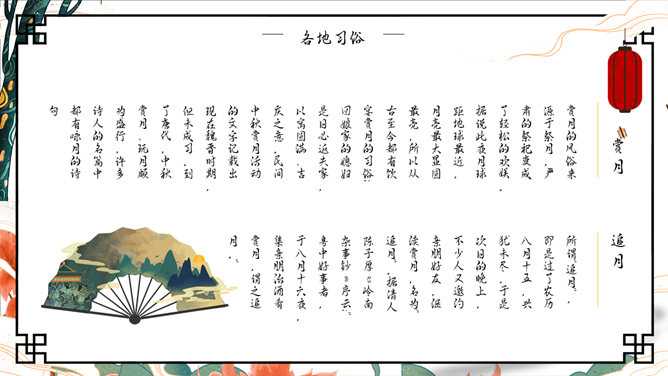 各地习俗
赏月
赏月的风俗来
源于祭月,严
肃的祭祀变成
了轻松的欢娱。
据说此夜月球
距地球最近,
月亮最大最圆
最亮,所以从
古至今都有饮
宴赏月的习俗;
回娘家的媳妇
是日必返夫家,
以寓圆满、吉
庆之意。民间
中秋赏月活动
的文字记载出
现在魏晋时期,
但未成习。到
了唐代,中秋
赏月、玩月颇
为盛行,许多
诗人的名篇中
都有咏月的诗
句
追月
所谓追月,
即是过了农历
八月十五,兴
犹未尽,于是
次日的晚上,
不少人又邀约
亲朋好友,继
续赏月,名为
追月。据清人
陈子厚《岭南
杂事钞》序云:
粤中好事者,
于八月十六夜,
集亲朋治酒肴
赏月,谓之追
月。